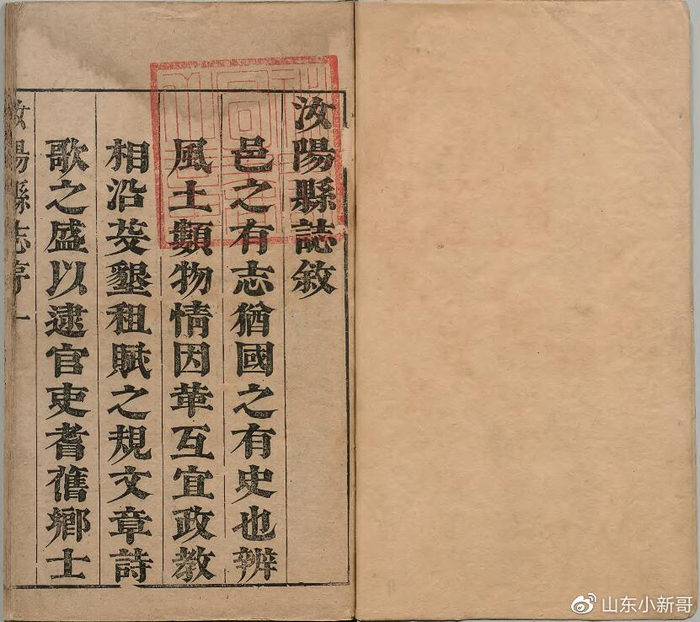 汝陽縣誌敘
邑之有志猶國之有史也辨
風土類物情因革互宜政教
相沿芟墾租賦之規文章詩
歌之盛以逮官吏耆舊鄉士
汝陽縣志序一
山东小新哥